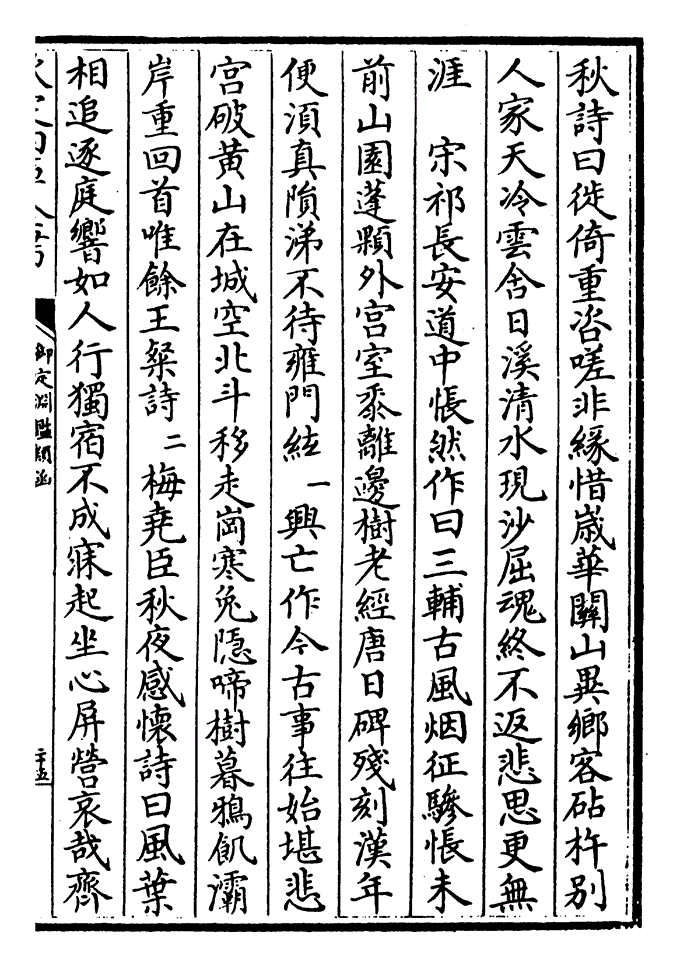 秋詩曰徙倚重咨嗟非緣惜嵗華關山異鄉客砧杵别
人家天冷雲含日溪清水現沙屈魂終不返悲思更無
涯　宋祁長安道中悵然作曰三輔古風烟征驂悵未
前山園蓬顆外宫室黍離邊樹老經唐日碑殘刻漢年
便湏真隕涕不待雍門絃一興亡作今古事往始堪悲
宫破黄山在城空北斗移走崗寒兔隱啼樹暮鴉飢灞
岸重回首唯餘王粲詩二梅堯臣秋夜感懷詩曰風葉
相追逐庭響如人行獨宿不成寐起坐心屏營哀哉齊
御定淵鑑類函
二十五